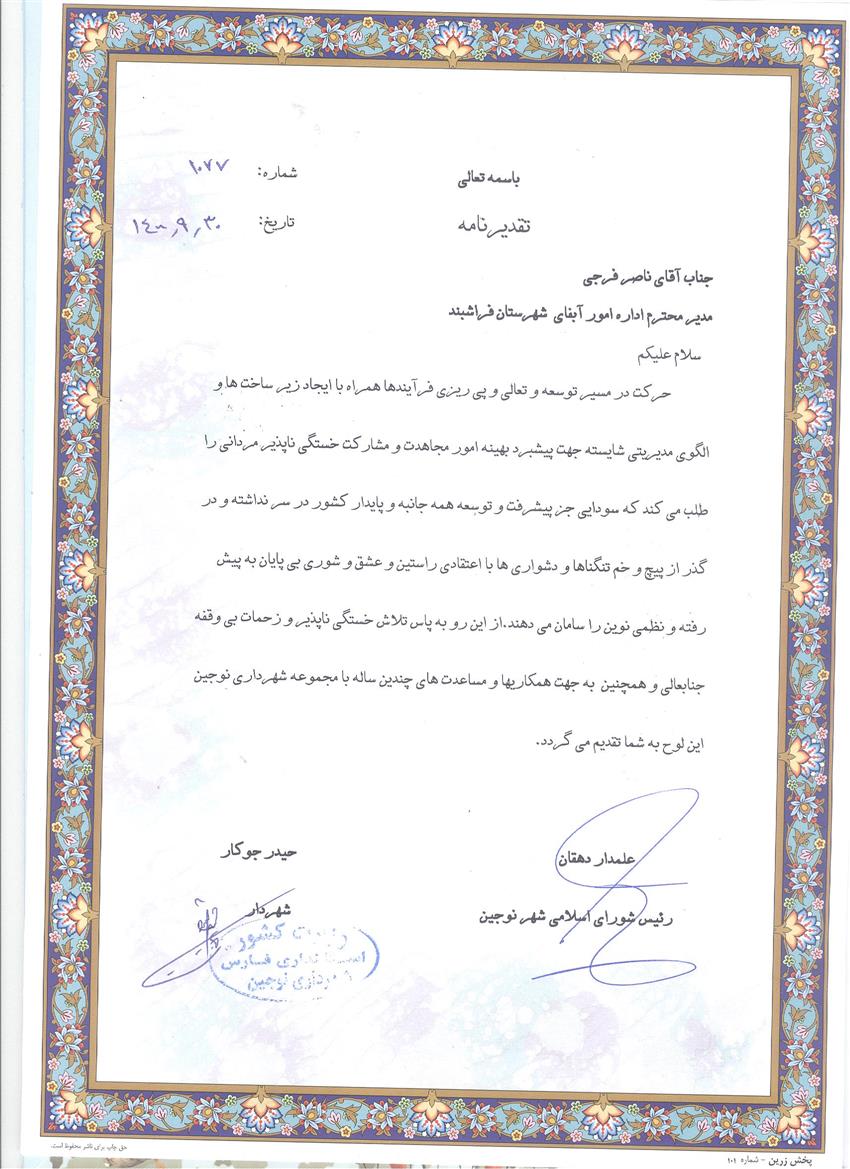 باسمه تعالی
شماره: ۱۰۷۷
تقدیرنامه
تاریخ: ۱۴۰۰٫۹٫۳۰
جناب آقای ناصر فرجی
مدیر محترم اداره امور آبفای شهرستان فراشبند
سلام علیکم
حرکت در مسیر توسعه و تعالی و پی ریزی فرآیندها همراه با ایجاد زیر ساخت ها و
الگوی مدیریتی شایسته جهت پیشبرد بهینه امور مجاهدت و مشارکت خستگی ناپذیر مردانی را
طلب می کند که سودایی جز پیشرفت و توسعه همه جانبه و پایدار کشور در سر نداشته و در
گذر از پیچ و خم تنگناها و دشواری ها با اعتقادی راستین و عشق و شوری بی پایان به پیش
رفته و نظمی نوین را سامان می دهند.از این رو به پاس تلاش خستگی ناپذیر و زحمات بی وقفه
جنابعالی و همچنین به جهت همکاریها و مساعدت های چندین ساله با مجموعه شهرداری نوجین
این لوح به شما تقدیم می گردد.
علمدار دهقان
حیدر جوکار
رئیس شورای اسلامی شهر نوجین
شهردار
وزارت کشور
استانداری فارس
شهرداری نوجین
حق چاپ برای ناشر محفوظ است.
پخش زرین - شماره ۱۰۱